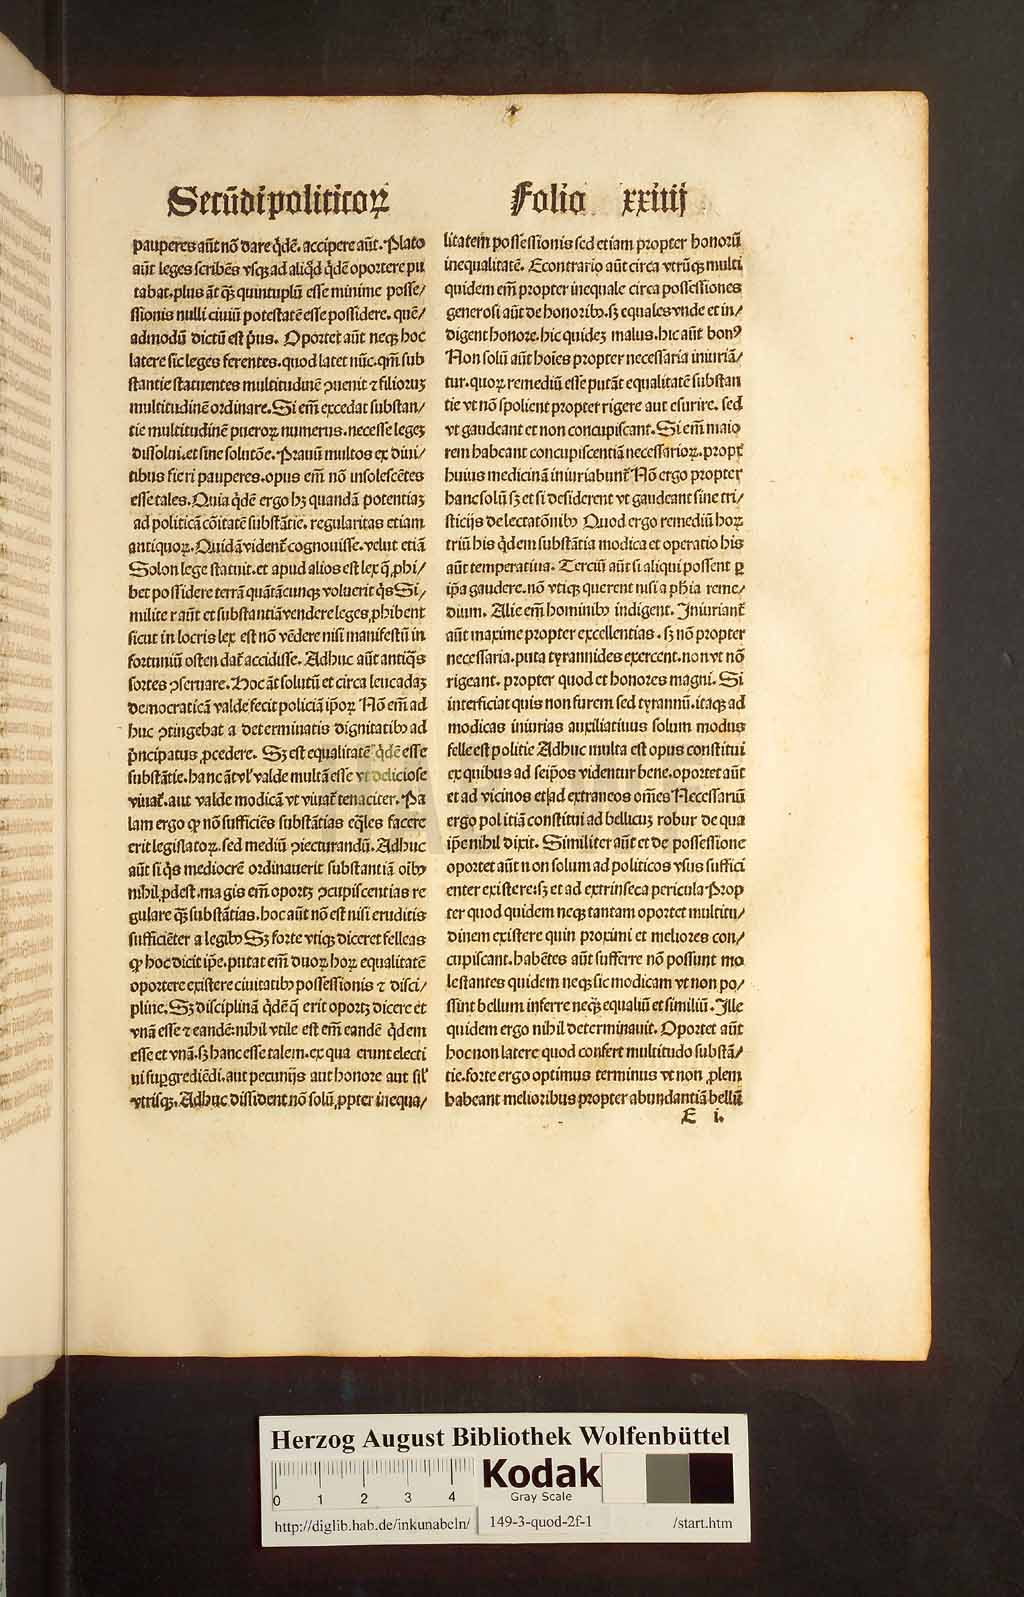 Secūdi politicoꝝ Folio xxiiij
pauperes aūt nō dare q̇dē. accipere aūt. Plato
aūt leges scribēs vsqꝫ ad aliq̇d q̇dē oportere pu
tabat. plus āt qꝫ̄ quintuplū esse minime posse/
ssionis nulli ciuiū potestatē esse possidere. quē/
admodū dictū est p̓us. Oportet aūt neqꝫ hoc
latere sic leges ferentes. quod latet nūc. qm̄ sub
stantie statuentes multitudinē ꝯuenit ⁊ filioruꝫ
multitudinē ordinare. Si em̄ excedat substan/
tie multitudinē pueroꝝ numerus. necesse legeꝫ
dissolui. et sine solutōe. Prauū multos ex diui/
tibus fieri pauperes. opus em̄ nō insolescētes
esse tales. Quia q̇dē ergo hꝫ quandā potentiaꝫ
ad politicā cōitatē substātie. regularitas etiam
antiquoꝝ. Quidā vident᷑ cognouisse. velut etiā
Solon lege statuit. et apud alios est lex q̄ ꝓhi/
bet possidere terrā quātācunqꝫ voluerit q̇s Si/
militer aūt et substantiā vendere leges ꝓhibent
sicut in locris lex est nō vēdere nisi manifestū in
fortuniū ostendat᷑ accidisse. Adhuc aūt antiq̇s
sortes ꝯseruare. Hoc āt solutū et circa leucadaꝫ
democraticā valde fecit policiā ip̄oꝝ Nō em̄ ad
huc ꝯtingebat a determinatis dignitatibꝰ ad
p̓ncipatus ꝓcedere. Sꝫ est equalitatē q̇dē esse
substātie. hanc āt vl᷑ valde multā esse vt deliciose
viuat᷑. aut valde modicā vt viuat᷑ tenaciter. Pa
lam ergo ꝙ nō sufficiēs substātias eq̄les facere
erit legislatoꝝ. sed mediū ꝯiecturandū. Adhuc
aūt si q̇s mediocrē ordinauerit substantiā oībꝰ
nihil ꝓdest. magis em̄ oportꝫ ꝯcupiscentias re
gulare qꝫ̄ substātias. hoc aūt nō est nisi eruditis
sufficiēter a legibꝰ Sꝫ forte vtiqꝫ diceret felleas
ꝙ hoc dicit ip̄e. putat em̄ duoꝝ hoꝝ equalitatē
oportere existere ciuitatibꝰ possessionis ⁊ disci/
pline. Sꝫ disciplinā q̇dē q̄ erit oportꝫ dicere et
vnā esse ⁊ eandē: nihil vtile est em̄ eandē q̇dem
esse et vnā. sꝫ hanc esse talem. ex qua erunt electi
ui suꝑgrediēdi. aut pecunijs aut honore aut sil᷑
vtrisqꝫ. Adhuc dissident nō solū ꝓpter inequa/
litatem possessionis sed etiam propter honorū
inequalitatē. Econtrario aūt circa vtrūqꝫ multi
quidem em̄ propter inequale circa possessiones
generosi aūt de honoribꝰ. sꝫ equales vnde et in/
digent honore. hic quideꝫ malus. hic aūt bonꝰ
Non solū aūt hoīes propter necessaria iniuriā/
tur. quoꝝ remediū esse putāt equalitatē substan
tie vt nō spolient propter rigere aut esurire. sed
vt gaudeant et non concupiscant. Si em̄ maio
rem habeant concupiscentiā necessarioꝝ. propt᷑
huius medicinā iniuriabunt᷑ Nō ergo propter
hanc solū sꝫ et si desiderent vt gaudeant sine tri/
sticijs delectatōnibꝰ Quod ergo remediū hoꝝ
triū his q̇dem substātia modica et operatio his
aūt temperatiua. Terciū aūt si aliqui possent ꝑ
ip̄a gaudere. nō vtiqꝫ querent nisi a phīa reme/
dium. Alie em̄ hominibꝰ indigent. Iniuriant᷑
aūt maxime propter excellentias. sꝫ nō propter
necessaria. puta tyrannides exercent. non vt nō
rigeant. propter quod et honores magni. Si
interficiat quis non furem sed tyrannū. itaqꝫ ad
modicas iniurias auxiliatiuus solum modus
felle est politie Adhuc multa est opus constitui
ex quibus ad seip̄os videntur bene. oportet aūt
et ad vicinos et ad extraneos om̄es Necessariū
ergo politiā constitui ad bellicuꝫ robur de qua
ip̄e nihil dixit. Similiter aūt et de possessione
oportet aūt non solum ad politicos vsus suffici
enter existere: sꝫ et ad extrinseca pericula Prop
ter quod quidem neqꝫ tantam oportet multitu/
dinem existere quin proximi et meliores con/
cupiscant. habētes aūt sufferre nō possunt mo
lestantes quidem neqꝫ sic modicam vt non po/
ssint bellum inferre neqꝫ equaliū et similiū. Ille
quidem ergo nihil determinauit. Oportet aūt
hoc non latere quod confert multitudo substā/
tie. forte ergo optimus terminus vt non ꝓlem
habeant melioribus propter abundantiā bellū
E i.
Herzog August Bibliothek Wolfenbüttel
0 1 2 3 4
Kodak
Gray Scale
http://diglib.hab.de/inkunabeln/ 149-3-quod-2f-1 /start.htm